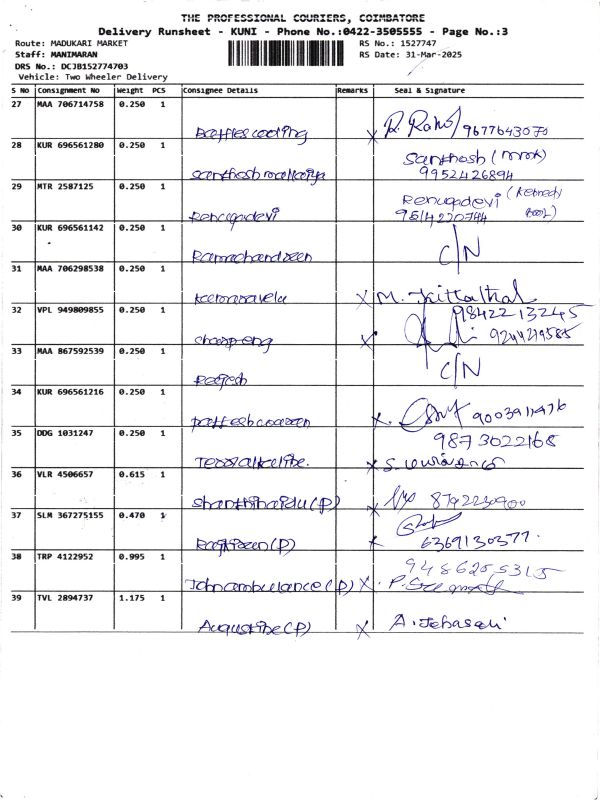 THE PROFESSIONAL COURIERS, COIMBATORE
Delivery Runsheet - KUNI - Phone No.:0422-3505555 - Page No.:3
Route: MADUKARI MARKET RS No.: 1527747
Staff: MANIMARAN RS Date: 31-Mar-2025
DRS No.: DCJB152774703
Vehicle: Two Wheeler Delivery
S No Consignment No Weight PCS Consignee Details Remarks Seal & Signature
27 MAA 706714758 0.250 1
x R. Rahul 9677643070
28 KUR 696561280 0.250 1
Santhosh
9952426894
29 MTR 2587125 0.250 1
Renugadevi Renugadevi
9514220744
30 KUR 696561142 0.250 1
Ramachandeen C/N
31 MAA 706298538 0.250 1
x M.
32 VPL 949809855 0.250 1
9842213245
x 9244219585
33 MAA 867592539 0.250 1
Ragesh C/N
34 KUR 696561216 0.250 1
x. 9003911476
35 DDG 1031247 0.250 1
9873022168
x S.
36 VLR 4506657 0.615 1
Shanthinaidu(P) x 8792230900
37 SLM 367275155 0.470 1
(P) x 6369130377.
38 TRP 4122952 0.995 1
9486255315
Johnambulance(P) x. P.
39 TVL 2894737 1.175 1
Augustine(P) x A. Jebasali